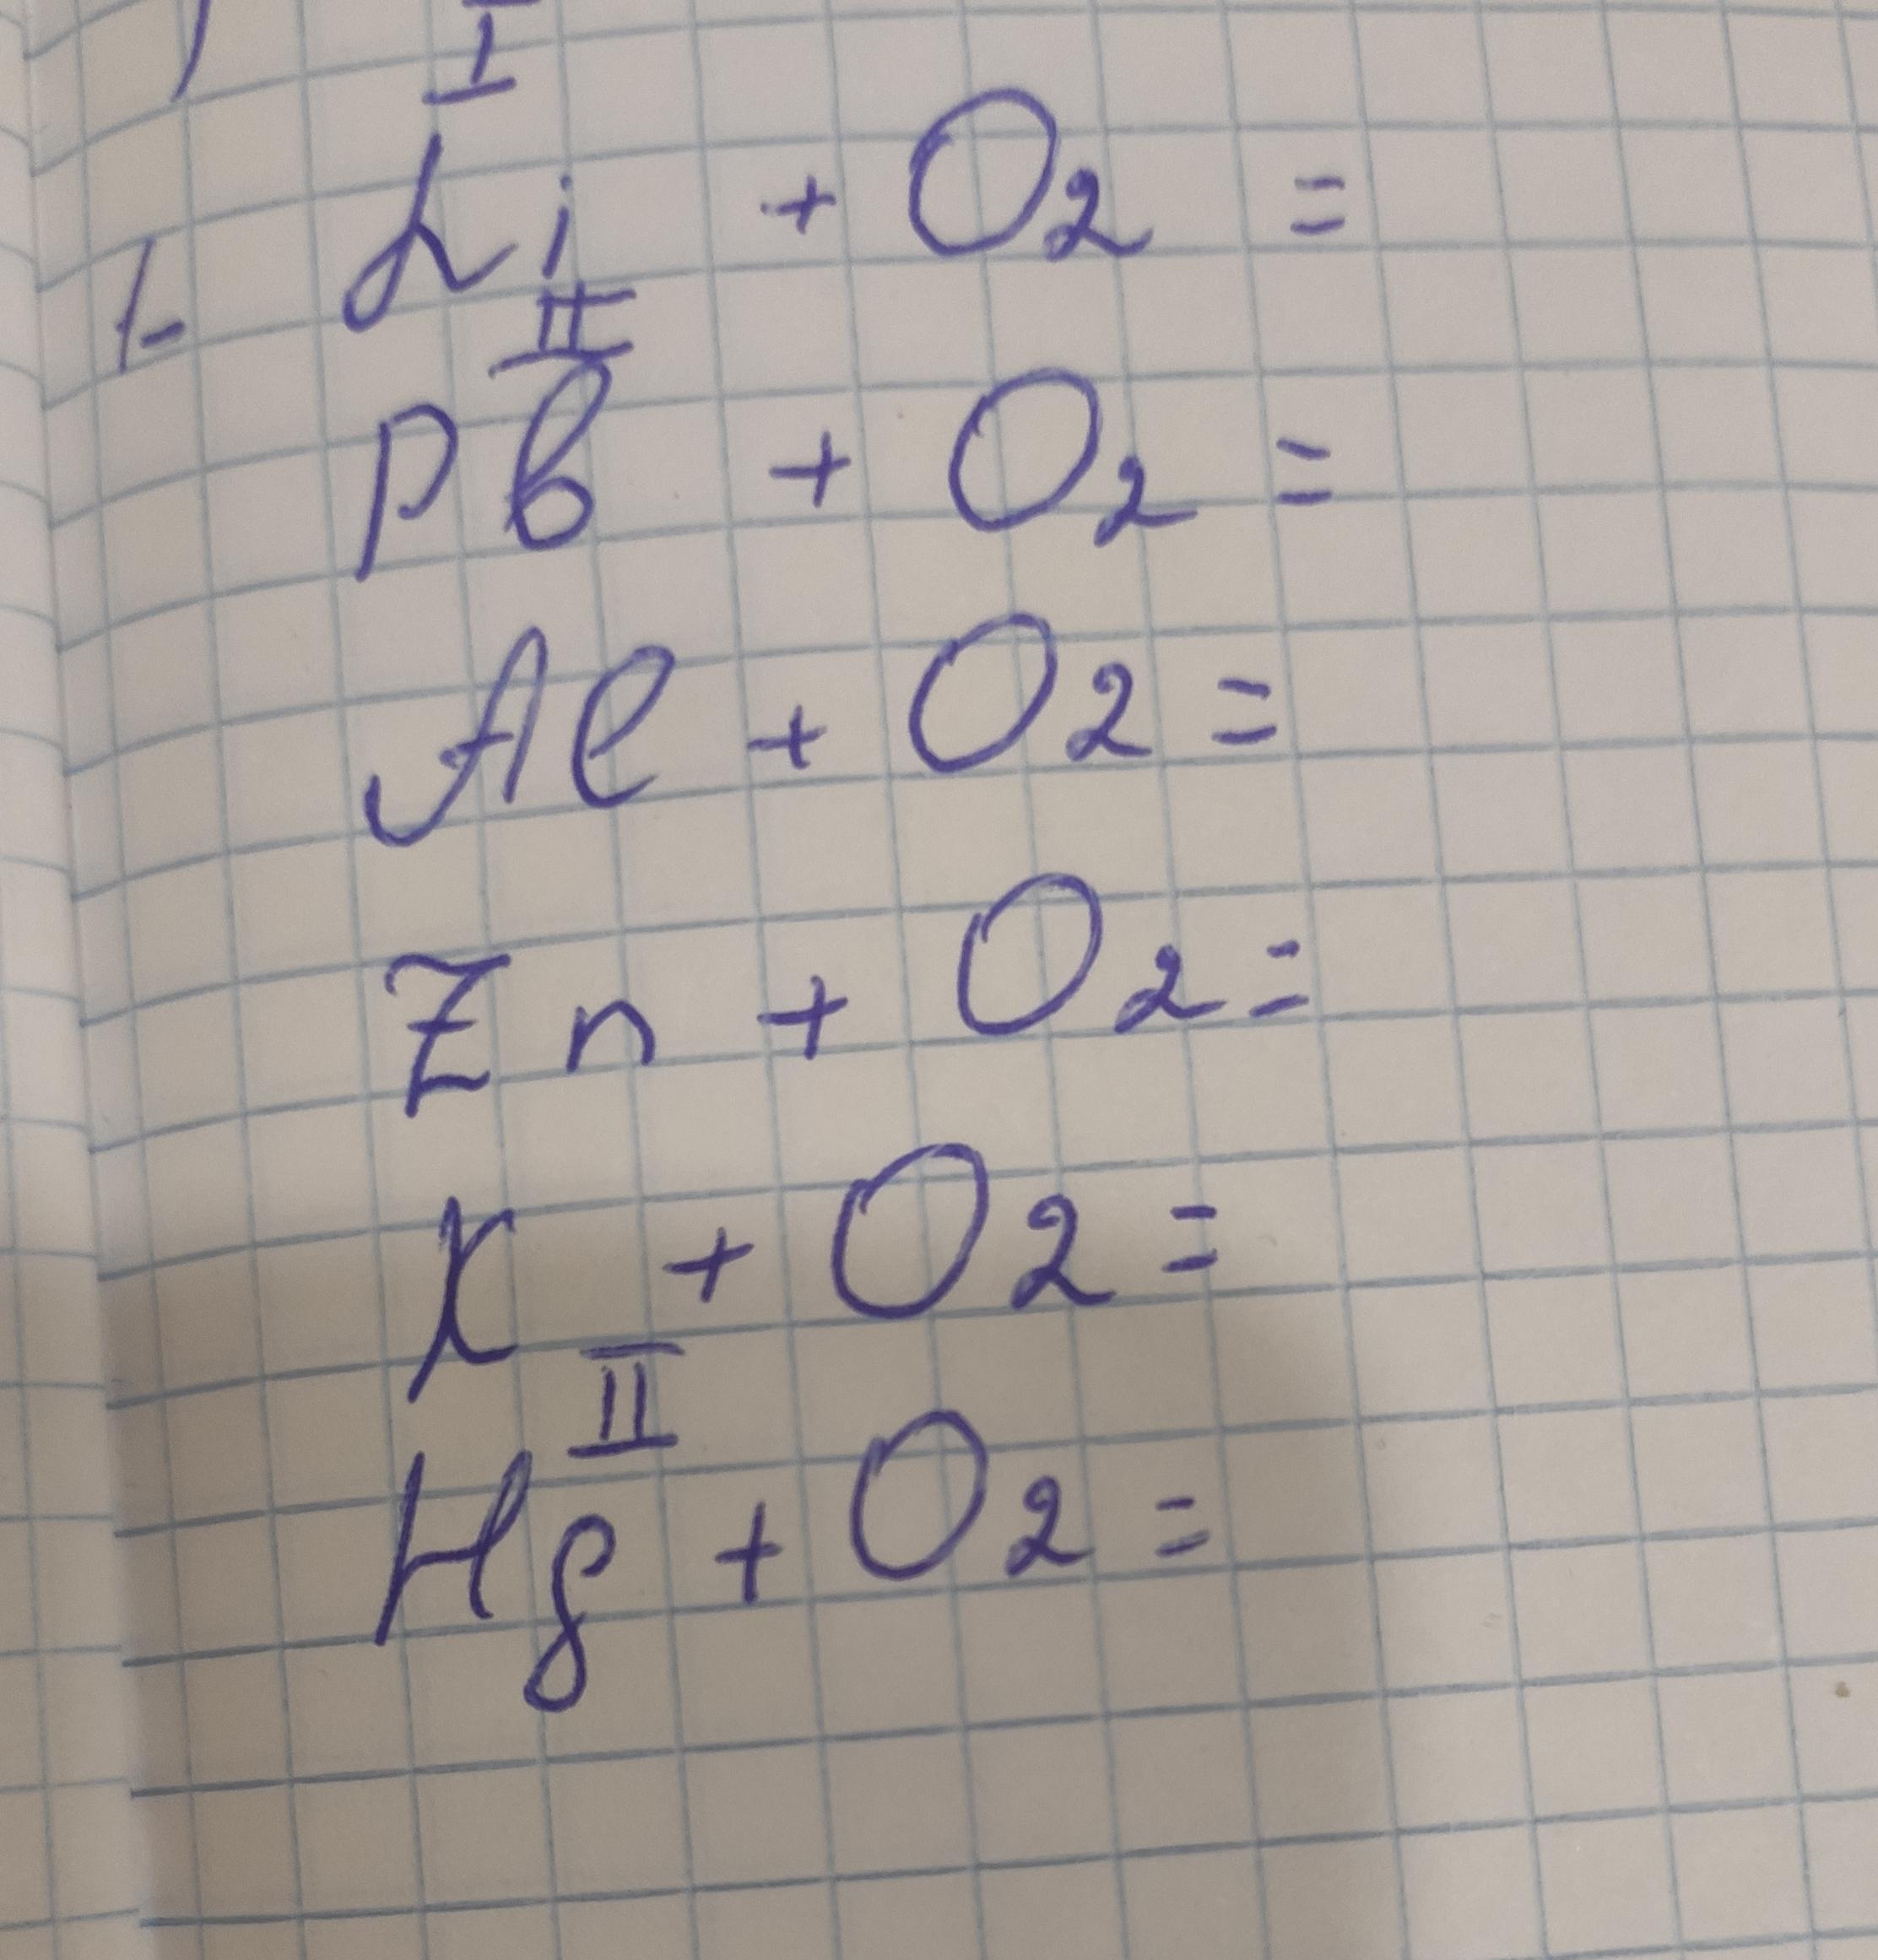 I
1. Li + O2 =
II
Pb + O2 =
Al + O2 =
Zn + O2 =
K + O2 =
II
Hg + O2 =